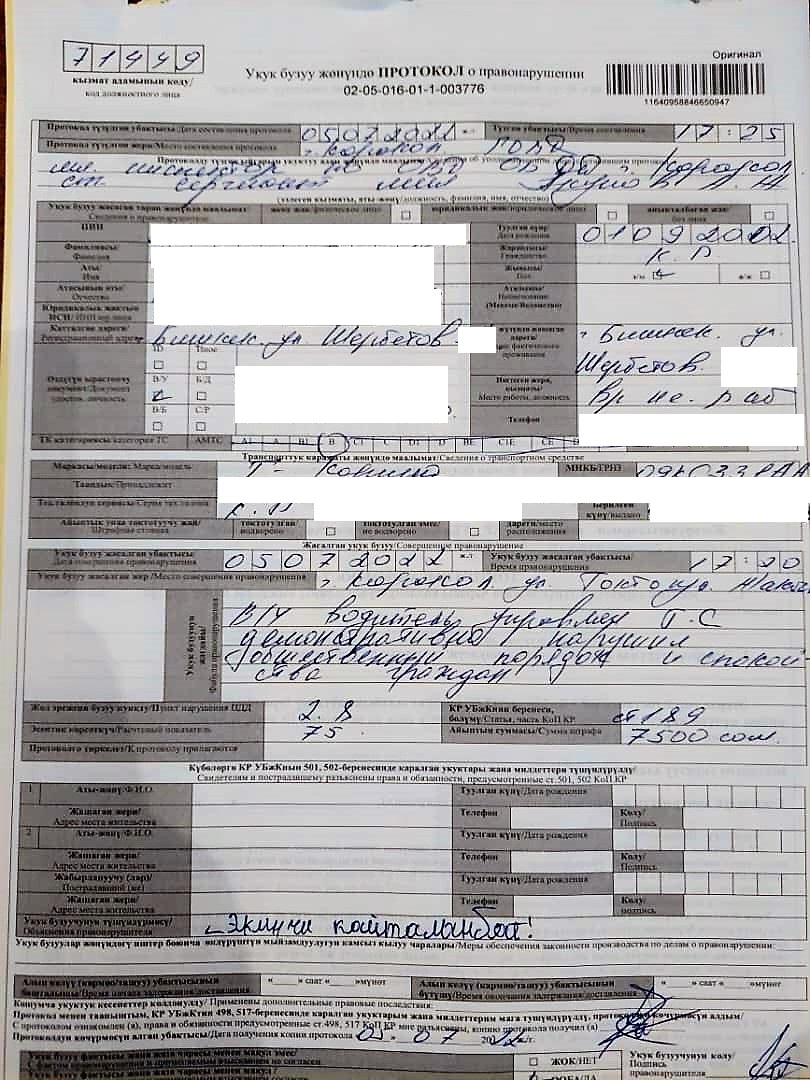 71449
кызмат адамынын коду/
код должностного лица
Укук бузуу жөнүндө ПРОТОКОЛ о правонарушении
02-05-016-01-1-003776
Оригинал
11640958846650947
Протокол түзүлгөн убактысы/Дата составления протокола 05072022
Түзгөн убактысы/Время составления 17:25
Протокол түзүлгөн жери/Место составления протокола г. Каракол
(ээлеген кызматы, аты-жөнү/должность, фамилия, имя, отчество)
Укук бузуу жасаган тарап жөнүндө маалымат/
Сведения о правонарушителе
жеке жак/физическое лицо
юридикалык жак/юридическое лицо
аныкталбаган жак/
без лица
ПИН
Туулган күнү/
Дата рождения 01092002
Фамилиясы/
Фамилия
Жарандыгы/
Гражданство К.Р
Аты/
Имя
Жынысы/
Пол
Атасынын аты/
Отчество
Аталышы/
Наименование
Юридикалык жактын
Катталган дареги/
Регистрационный адрес Бишкек ул Шербетов
Бишкек. ул.
Шербетов.
ID Иное
В/У Б/Д
В/Б С/Р
Өздүгүн ырастоочу
документ/Документ
удостов. личность
Иштеген жери,
кызматы/
Место работы, должность Вр не. раб
Телефон
ТК категориясы/категория ТС АМТС A1 A B1 B C1 C D1 D BE C1E CE
Транспорттук каражаты жөнүндө маалымат/Сведения о транспортном средстве
Маркасы/модели/Марка/модель
МНКБ/ГРНЗ
Таандык/Принадлежит
Берилген
күнү/выдано
Айыптык унаа токтотуучу жай/
Штрафная стоянка
токтотулган/
водворено
токтотулган эмес/
не водворено
дареги/место
расположения
Жасалган укук бузуу/Совершенное правонарушение
Укук бузуу жасалган убактысы/
Дата совершения правонарушения 05072022
Укук бузуу жасалган убактысы/
Время правонарушения 17:20
Укук бузуу жасалган жер/Место совершения правонарушения г. Каракол ул Токтогула
Укук бузуунун
жагдайы/
Фабула правонарушения
В/У водитель управляя Т.С
демонстративно нарушил
общественный порядок и спокой
ства граждан
Жол эрежени бузуу пункту/Пункт нарушения ПДД 2.8
КР УБжКнин беренеси,
бөлүмү/Статья, часть КоП КР ст 189
Эсептик көрсөткүч/Расчетный показатель 75
Айыптын суммасы/Сумма штрафа 7500 сом.
Протоколго тиркелет/К протоколу прилагаются
Күбөлөргө КР УБжКнын 501, 502-беренесинде каралган укуктары жана милдеттери түшүндүрүлдү/
Свидетелям и пострадавшему разъяснены права и обязанности, предусмотренные ст.501, 502 КоП КР
1 Аты-жөнү/Ф.И.О.
Туулган күнү/Дата рождения
Жашаган жери/
Адрес места жительства
Телефон
Колу/
Подпись
2 Аты-жөнү/Ф.И.О.
Туулган күнү/Дата рождения
Жашаган жери/
Адрес места жительства
Телефон
Колу/
Подпись
Жабырлануучу (лар)/
Пострадавший (ие)
Туулган күнү/Дата рождения
Жашаган жери/
Адрес места жительства
Телефон
Колу/
подпись
Укук бузуучунун түшүндүрмөсү/
Объяснения правонарушителя Экинчи кайталанбайт!
Укук бузуулар жөнүндөгү иштер боюнча өндүрүштүн мыйзамдуулугун камсыз кылуу чаралары/Меры обеспечения законности производства по делам о правонарушении:
Алып келүү (кармоо/ташуу) убактысынын
башталышы/Время начала задержания/доставления
«____» саат «____»мүнөт
Алып келүү (кармоо/ташуу) убактысынын
бүтүшү/Время окончания задержания/доставления
«____» саат «____»мүнөт
Кошумча укуктук кесепеттер колдонулду/ Применены дополнительные правовые последствия:
Протокол менен тааныштым, КР УБжКнин 498, 517-беренесинде каралган укуктарым жана милдеттерим мага түшүндүрүлдү, протоколдун көчүрмөсүн алдым/
С протоколом ознакомлен (а), права и обязанности предусмотренные ст.498, 517 КоП КР мне разъяснены, копию протокола получил (а)
Протоколдун көчүрмөсүн алган убактысы/Дата получения копии протокола 05 07 2022ж/г.
Укук бузуу фактысы жана жаза чарасы менен макул эмес/
С фактом правонарушения и применением взыскания не согласен
ЖОК/НЕТ
Укук бузуу фактысы жана жаза чарасы менен макул/
ООБА/ДА
Укук бузуучунун колу/
Подпись
правонарушителя